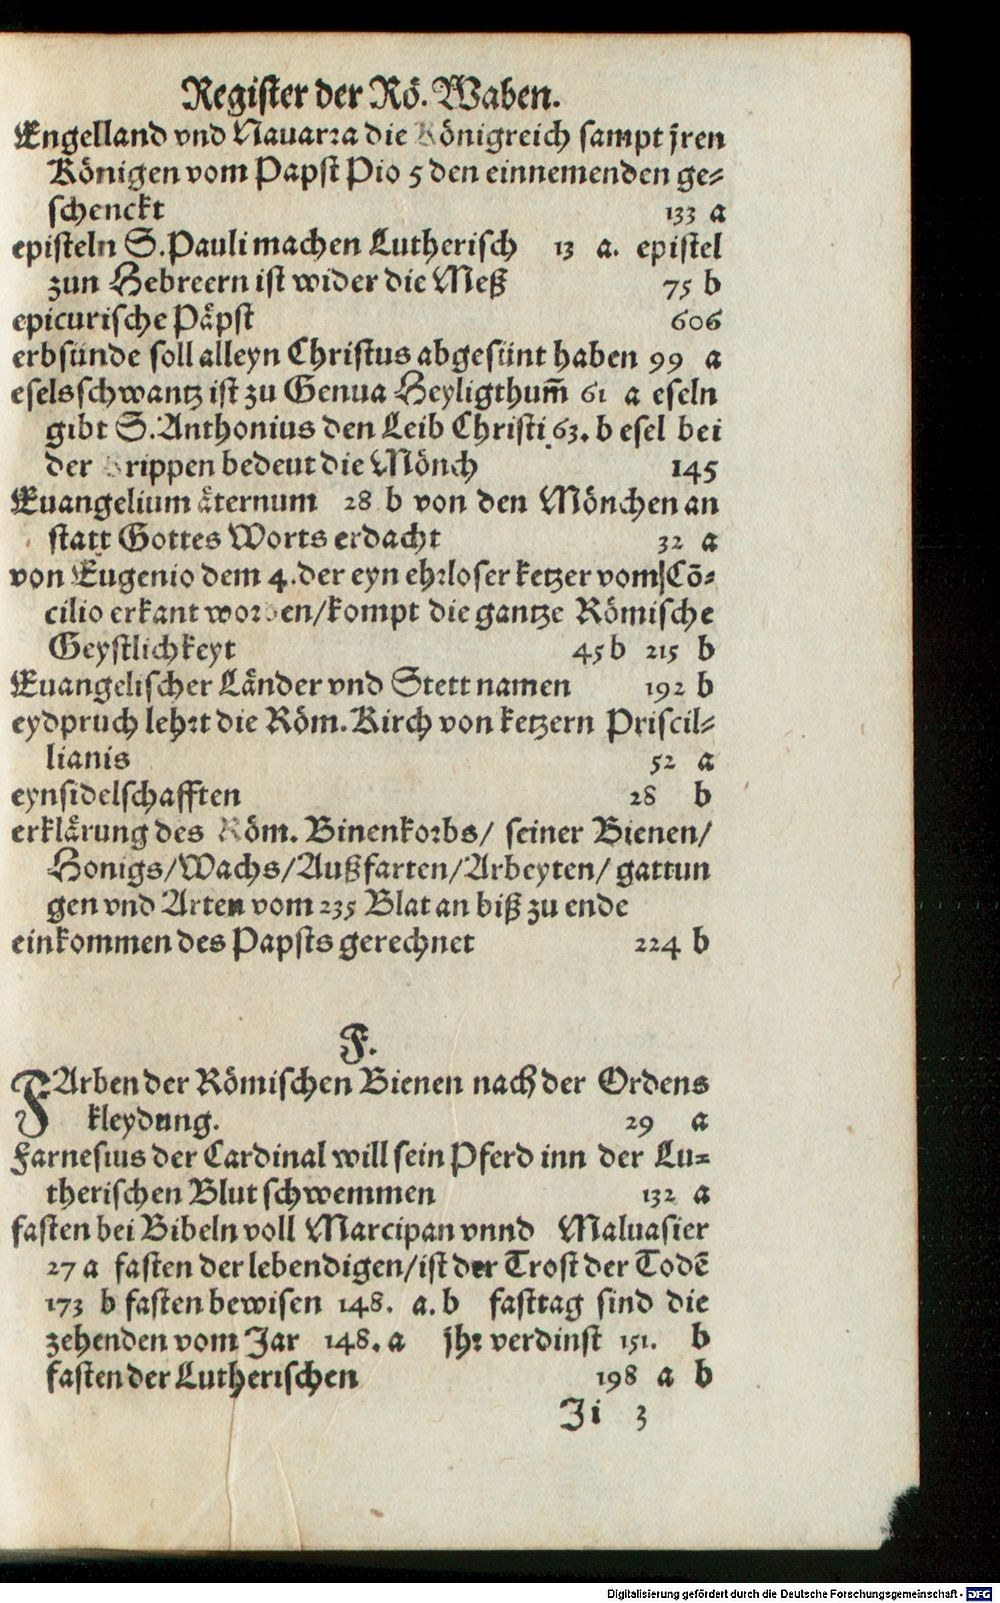 Register der Rö. Waben.
Engelland vnd Nauarra die Königreich sampt jren
Königen vom Papst Pio 5 den einnemenden ge⸗
schenckt 133 a
episteln S. Pauli machen Lutherisch 13 a. epistel
zun Hebreern ist wider die Meß 75 b
epicurische Päpst 606
erbsünde soll alleyn Christus abgesünt haben 99 a
eselsschwantz ist zu Genua Heyligthum̃ 61 a eseln
gibt S. Anthonius den Leib Christi 63. b esel bei
der Krippen bedeut die Mönch 145
Euangelium äternum 28 b von den Mönchen an
statt Gottes Worts erdacht 32 a
von Eugenio dem 4. der eyn ehrloser ketzer vom Cō⸗
cilio erkant worden/kompt die gantze Römische
Geystlichkeyt 45 b 215 b
Euangelischer Länder vnd Stett namen 192 b
eydpruch lehrt die Röm. Kirch von ketzern Priscil⸗
lianis 52 a
eynsidelschafften 28 b
erklärung des Röm. Binenkorbs/ seiner Bienen/
Honigs/Wachs/Außfarten/Arbeyten/ gattun
gen vnd Arten vom 235 Blat an biß zu ende
einkommen des Papsts gerechnet 224 b
F.
FArben der Römischen Bienen nach der Ordens
kleydung. 29 a
Farnesius der Cardinal will sein Pferd inn der Lu⸗
therischen Blut schwemmen 132 a
fasten bei Bibeln voll Marcipan vnnd Maluasier
27 a fasten der lebendigen/ist der Trost der Todẽ
173 b fasten bewisen 148. a. b fasttag sind die
zehenden vom Jar 148. a jhr verdinst 151. b
fasten der Lutherischen 198 a b
Ji 3
Digitalisierung gefördert durch die Deutsche Forschungsgemeinschaft - DFG